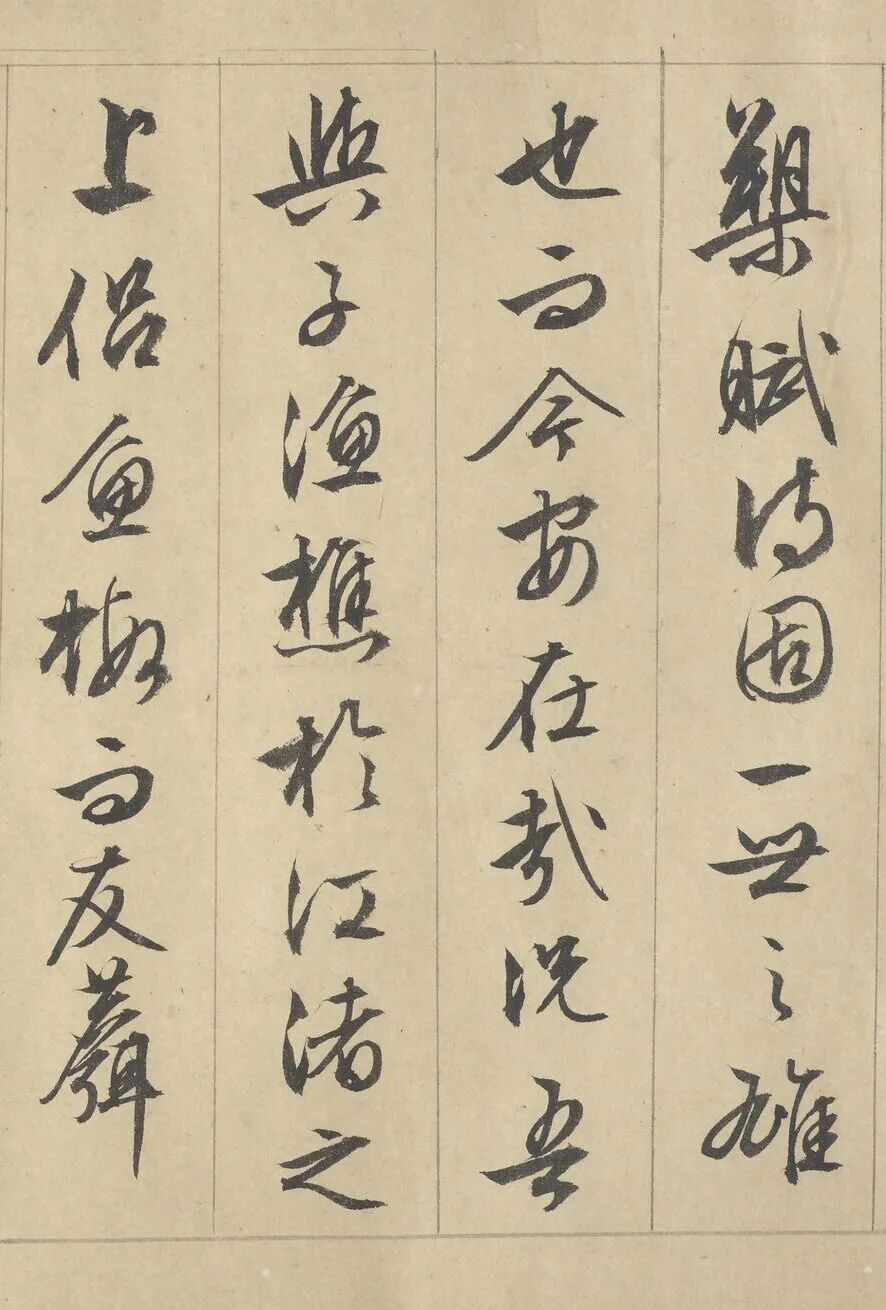 槊賦詩固一世之雄
也而今安在哉況吾
與子漁樵於江渚之
上侶魚而友